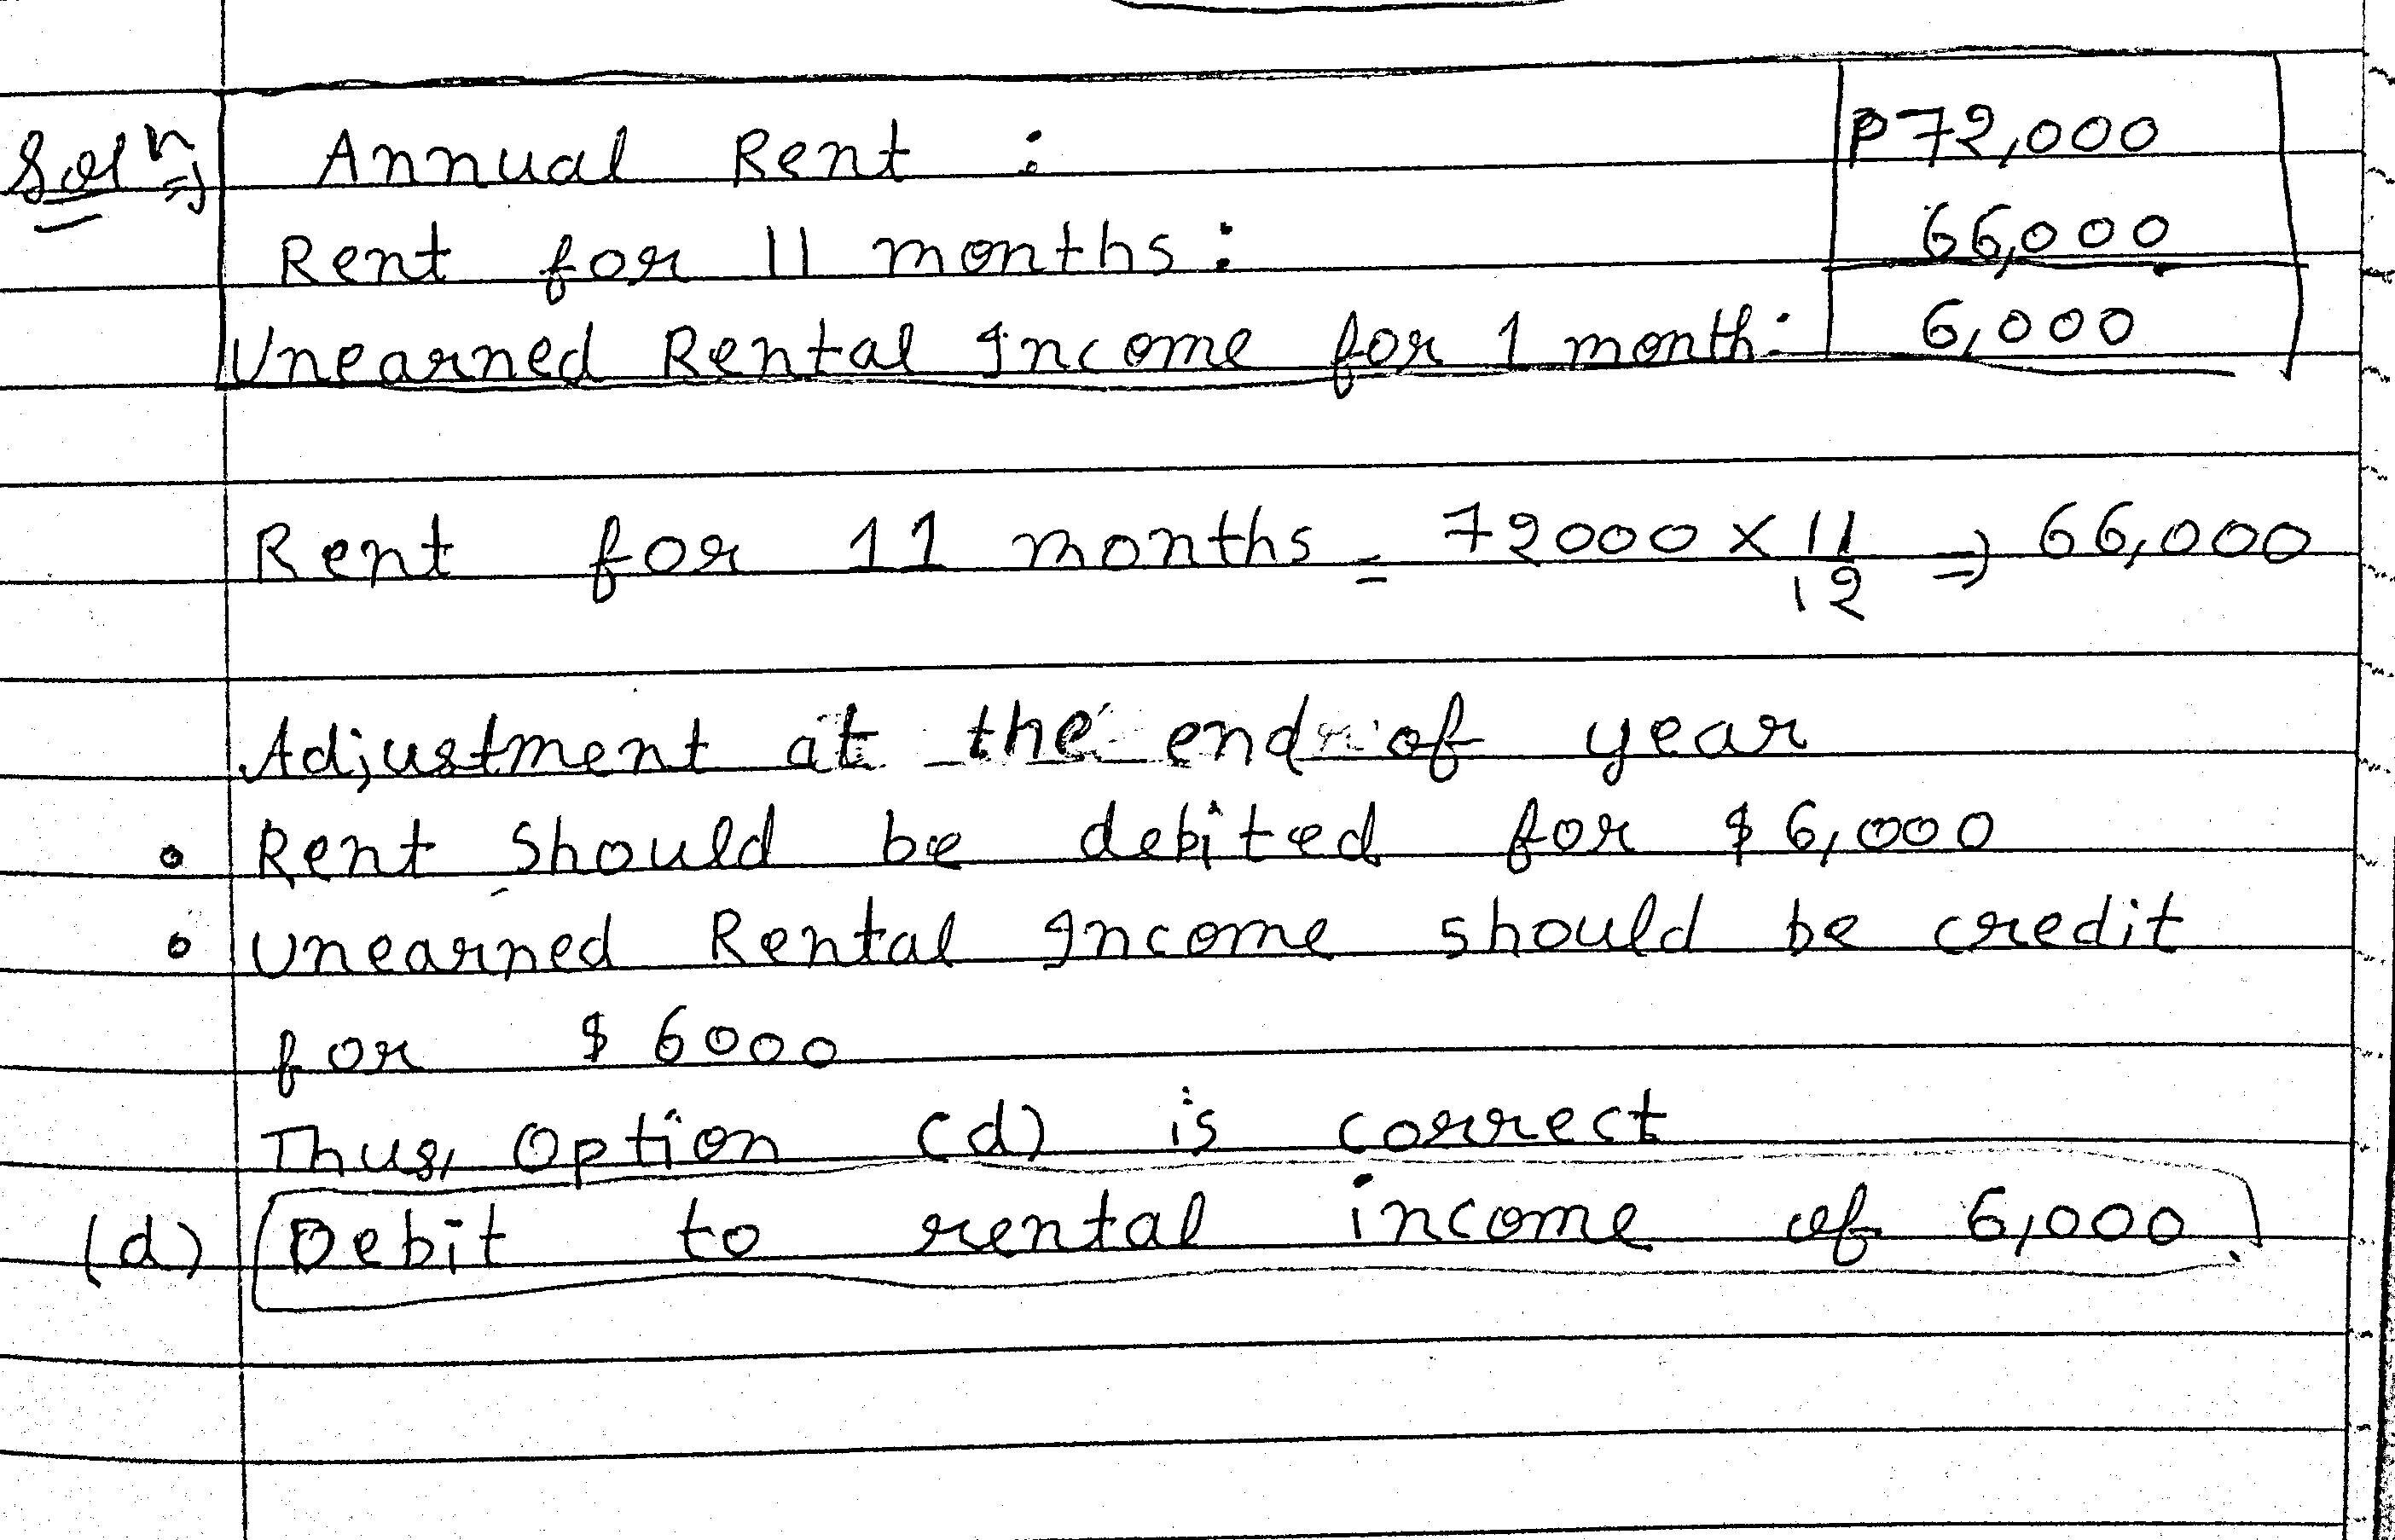 Solⁿ⇒ Annual Rent : ₱72,000
Rent for 11 months : 66,000
Unearned Rental Income for 1 month: 6,000
Rent for 11 months = 72000 × 11/12 ⇒ 66,000
Adjustment at the end of year
• Rent should be debited for $6,000
• Unearned Rental Income should be credit
for $6000
Thus, Option (d) is correct
(d) Debit to rental income of 6,000.